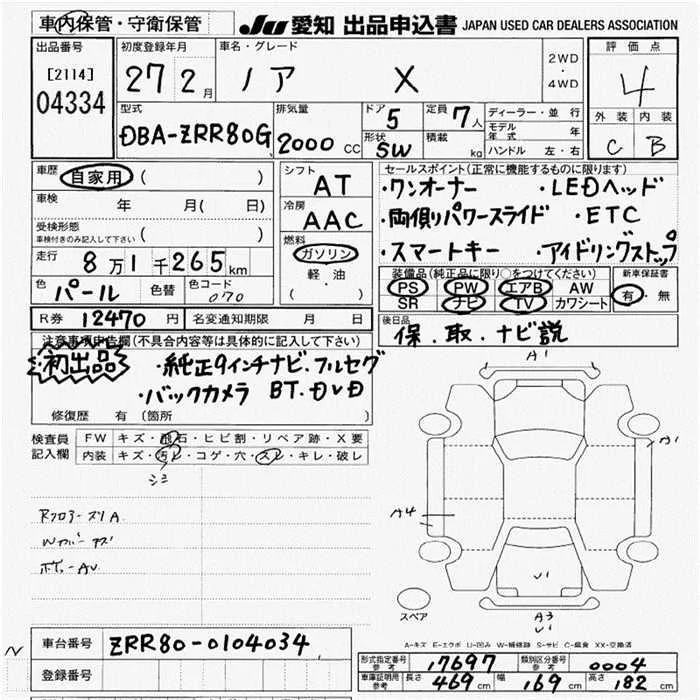 車内保管・守衛保管
JU 愛知 出品申込書 JAPAN USED CAR DEALERS ASSOCIATION
出品番号 [2114] 04334
初度登録年月 27 2月
車名・グレード ノア X
2WD・4WD
評価点 4
外装 C 内装 B
型式 DBA-ZRR80G
排気量 2000 CC
ドア 5
形状 SW
定員 7人
積載 kg
ディーラー・並行
モデル年式 年
ハンドル 左・右
車歴 自家用 ( )
車検 年 月( 日)
受検形態 車検付きのみ記入して下さい ( )
走行 8万1千265km
色 パール 色替 色コード 070
シフト AT
冷房 AAC
燃料 ガソリン 軽・油 ( )
セールスポイント(正常に機能するものに限ります)
・ワンオーナー ・LEDヘッド
・両側パワースライド ・ETC
・スマートキー ・アイドリングストップ
装備品(純正品に限り○をつけてください)
PS PW エアB AW
SR ナビ TV カワシート
新車保証書 有・無
R券 12470円 名変通知期限 月 日
後日品 保.取.ナビ説
注意事項申告欄(不具合内容等は具体的に記入して下さい)
初出品 ・純正9インチナビ.フルセグ
・バックカメラ BT.DVD
修復歴 有 (箇所
検査員記入欄
FW キズ・飛石・ヒビ割・リペア跡・X要
内装 キズ・汚レ・コゲ・穴・スレ・キレ・破レ
シミ
A1
A1
A4
U1
A3
U1
スペア
A-キズ E-エクボ U-凹み W-補修跡 S-サビ C-腐食 XX-交換済
車台番号 ZRR80-0104034
登録番号
形式指定番号 参考 17697 類別区分番号 参考 0004
車庫証明用 参考 長さ 469cm 幅 169cm 高さ 182cm